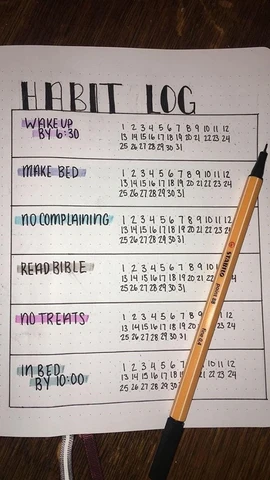 HABIT LOG
WAKE UP
BY 6:30
1 2 3 4 5 6 7 8 9 10 11 12
13 14 15 16 17 18 19 20 21 22 23 24
25 26 27 28 29 30 31
MAKE BED
1 2 3 4 5 6 7 8 9 10 11 12
13 14 15 16 17 18 19 20 21 22 23 24
25 26 27 28 29 30 31
NO COMPLAINING
1 2 3 4 5 6 7 8 9 10 11
13 14 15 16 17 18 19 20 21 24
25 26 27 28 29 30 31
READ BIBLE
1 2 3 4 5 6 7 8 9 10
13 14 15 16 17 18 19 20 23 24
25 26 27 28 29 30 31
NO TREATS
1 2 3 4 5 6 7 8 9 12
13 14 15 16 17 18 19 20 23 24
25 26 27 28 29 30 31
IN BED
BY 10:00
1 2 3 4 5 6 7 8 10 11 12
13 14 15 16 17 18 19 21 22 23 24
25 26 27 28 29 30
STABILO
point 88